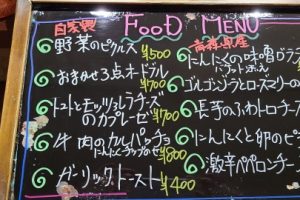 FOOD MENU
自家製
野菜のピクルス ¥500
おまかせ3点オードブル ¥700
トマトとモッツァレラチーズ
のカプレーゼ ¥700
牛肉のカルパッチョ
にんにくチップのせ ¥800
ガーリックトースト ¥400
青森県産
にんにくの味噌グラ
バケット添え
ゴルゴンゾーラとローズマリーの
長芋のふわトロチー
にんにくと卵のピ
激辛ペペロンチー